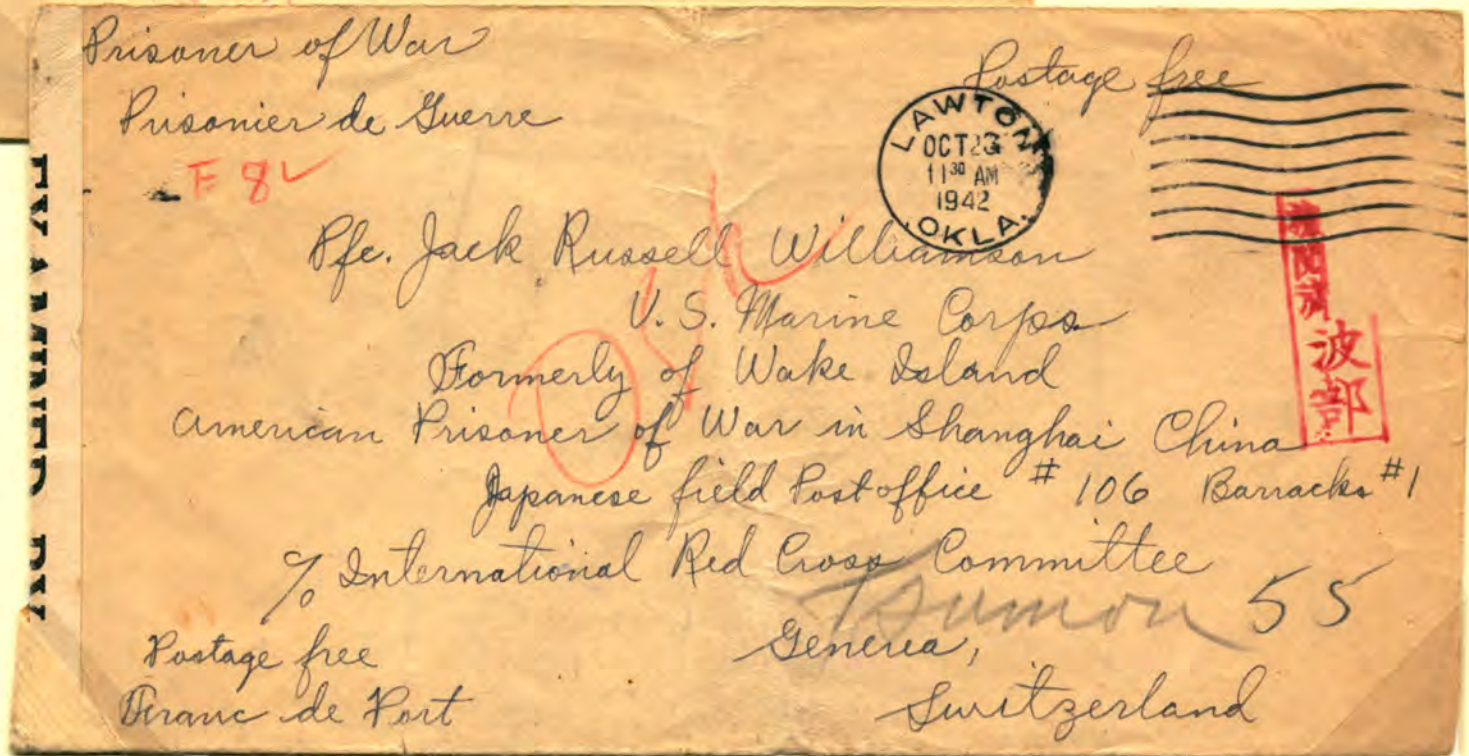 Prisoner of War
Prisonier de Guerre
Postage free
F 8
LAWTON
OCT 23
11 30 AM
1942
OKLA.
Pfc. Jack Russell Williamson
U.S. Marine Corps
Formerly of Wake Island
American Prisoner of War in Shanghai China
Japanese field Post office # 106 Barracks #1
% International Red Cross Committee
55
Geneva,
Switzerland
Postage free
Franc de Port
波部
EXAMINED BY